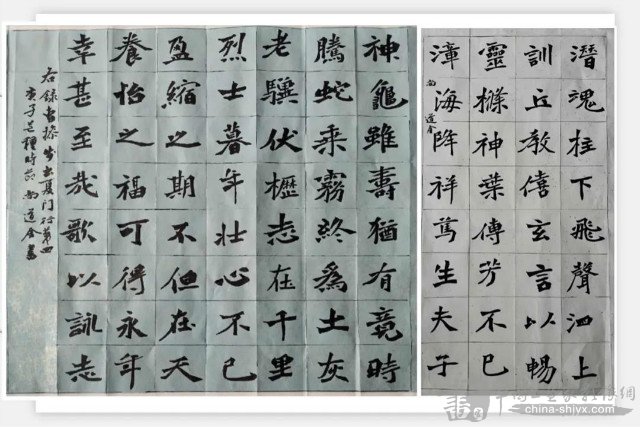 神龜雖壽猶有竟時
騰蛇乘霧終爲土灰
老驥伏櫪志在千里
烈士暮年壯心不已
盈縮之期不但在天
養怡之福可得永年
幸甚至哉歌以詠志
右錄曹操步出夏門行第四
庚子芒種時節 尚道金書
潛魂柱下飛聲泗上
訓丘教僖玄言以暢
靈條神葉傳芳不已
漳海降祥篤生夫子
尚道金
china-shiyx.com